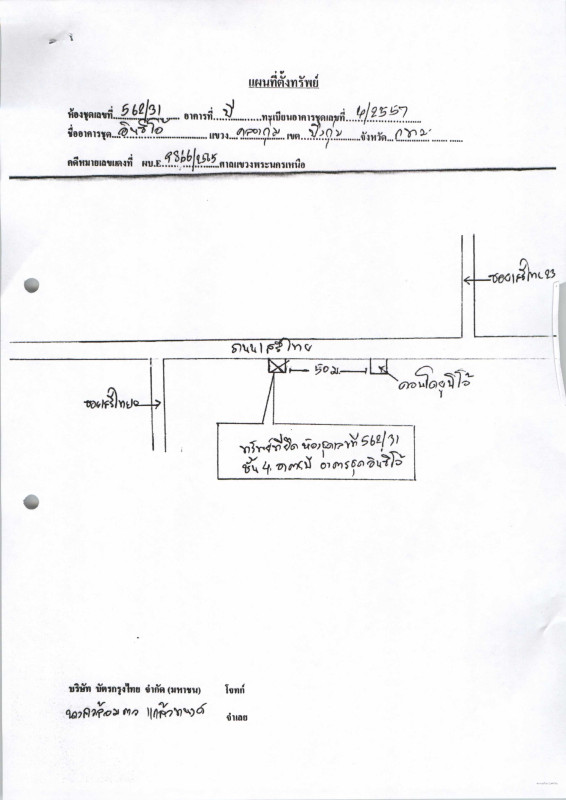 แผนที่ตั้งทรัพย์
ห้องชุดเลขที่ 562/31 อาคารที่ บี ทะเบียนอาคารชุดเลขที่ 4/2557
ชื่ออาคารชุด อินซีโอ้ แขวง คลองกุ่ม เขต บึงกุ่ม จังหวัด กทม.
คดีหมายเลขแดงที่ ผบ.E 9866/2565 ศาลแขวงพระนครเหนือ
ซอยเสรีไทย 23
ถนนเสรีไทย
50 ม.
คอนโดยูนิโอ้
ซอยเสรีไทย
ทรัพย์ที่ยึด ห้องชุดเลขที่ 562/31
ชั้น 4 อาคารบี อาคารชุด อินซีโอ้
บริษัท บัตรกรุงไทย จำกัด (มหาชน) โจทก์
จำเลย